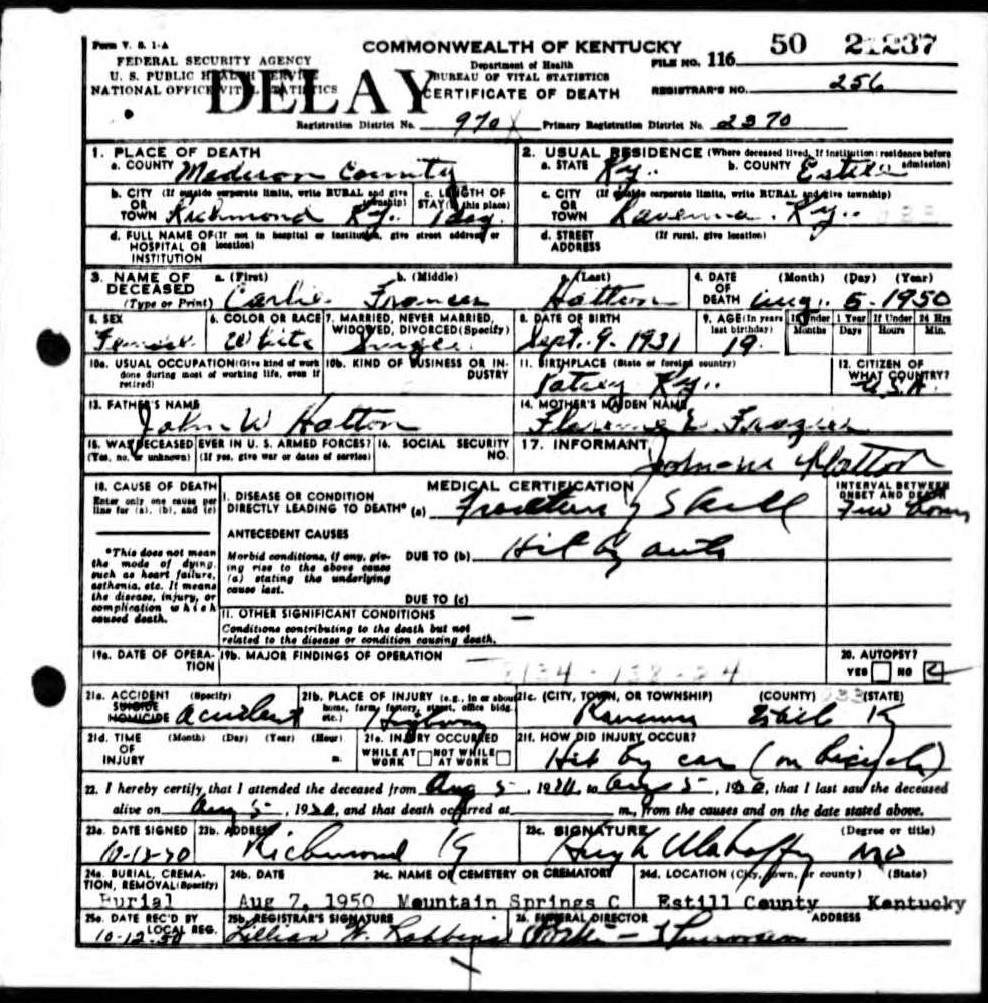 Form V. S. 1-A
COMMONWEALTH OF KENTUCKY
FEDERAL SECURITY AGENCY
Department of Health
FILE NO. 116 50 21237
U. S. PUBLIC HEALTH SERVICE
BUREAU OF VITAL STATISTICS
NATIONAL OFFICE VITAL STATISTICS
DELAY
CERTIFICATE OF DEATH
REGISTRAR'S NO. 256
Registration District No. 970 Primary Registration District No. 2370
1. PLACE OF DEATH
a. COUNTY Madison County
2. USUAL RESIDENCE (Where deceased lived. If institution: residence before admission)
a. STATE Ky. b. COUNTY Estill
b. CITY (If outside corporate limits, write RURAL and give township) OR TOWN Richmond Ky.
c. LENGTH OF STAY (in this place) 1 day
c. CITY (If outside corporate limits, write RURAL and give township) OR TOWN Ravenna. Ky.
d. FULL NAME OF (If not in hospital or institution, give street address or location) HOSPITAL OR INSTITUTION
d. STREET ADDRESS (If rural, give location)
3. NAME OF DECEASED (Type or Print)
a. (First) Carlie b. (Middle) Frances c. (Last) Hatton
4. DATE OF DEATH (Month) (Day) (Year) Aug. 5. 1950
5. SEX Female
6. COLOR OR RACE White
7. MARRIED, NEVER MARRIED, WIDOWED, DIVORCED (Specify) Single
8. DATE OF BIRTH Sept. 9. 1931
9. AGE (In years last birthday) 19
If Under 1 Year Months Days
If Under 24 Hrs Hours Min.
10a. USUAL OCCUPATION (Give kind of work done during most of working life, even if retired)
10b. KIND OF BUSINESS OR INDUSTRY
11. BIRTHPLACE (State or foreign country) Patsey Ky.
12. CITIZEN OF WHAT COUNTRY? U.S.A.
13. FATHER'S NAME John W Hatton
14. MOTHER'S MAIDEN NAME Florence E. Frazier
15. WAS DECEASED EVER IN U. S. ARMED FORCES? (Yes, no, or unknown) (If yes, give war or dates of service)
16. SOCIAL SECURITY NO.
17. INFORMANT John W Hatton
18. CAUSE OF DEATH
Enter only one cause per line for (a), (b), and (c)
MEDICAL CERTIFICATION
INTERVAL BETWEEN ONSET AND DEATH
I. DISEASE OR CONDITION DIRECTLY LEADING TO DEATH* (a) Fracture of Skull Few hours
*This does not mean the mode of dying, such as heart failure, asthenia, etc. It means the disease, injury, or complication which caused death.
ANTECEDENT CAUSES
Morbid conditions, if any, giving rise to the above cause (a) stating the underlying cause last.
DUE TO (b) Hit by auto
DUE TO (c)
II. OTHER SIGNIFICANT CONDITIONS
Conditions contributing to the death but not related to the disease or condition causing death.
19a. DATE OF OPERATION
19b. MAJOR FINDINGS OF OPERATION
20. AUTOPSY?
YES NO
21a. ACCIDENT SUICIDE HOMICIDE (Specify) Accident
21b. PLACE OF INJURY (e.g., in or about home, farm, factory, street, office bldg. etc.) Highway
21c. (CITY, TOWN, OR TOWNSHIP) (COUNTY) (STATE)
Ravenna Estill K
21d. TIME OF INJURY (Month) (Day) (Year) (Hour) m.
21e. INJURY OCCURRED
WHILE AT WORK NOT WHILE AT WORK
21f. HOW DID INJURY OCCUR?
Hit by car (on bicycle)
22. I hereby certify that I attended the deceased from Aug 5, 1950, to Aug 5, 1950, that I last saw the deceased
alive on Aug 5, 1950, and that death occurred at m., from the causes and on the date stated above.
23a. DATE SIGNED 10-12-50
23b. ADDRESS Richmond Ky
23c. SIGNATURE (Degree or title) Hugh Mahaffy MD
24a. BURIAL, CREMATION, REMOVAL (Specify) Burial
24b. DATE Aug 7, 1950
24c. NAME OF CEMETERY OR CREMATORY Mountain Springs C
24d. LOCATION (City, town, or county) (State) Estill County Kentucky
25a. DATE REC'D BY LOCAL REG. 10-12-50
25b. REGISTRAR'S SIGNATURE Lillian W. Robbins
26. FUNERAL DIRECTOR ADDRESS